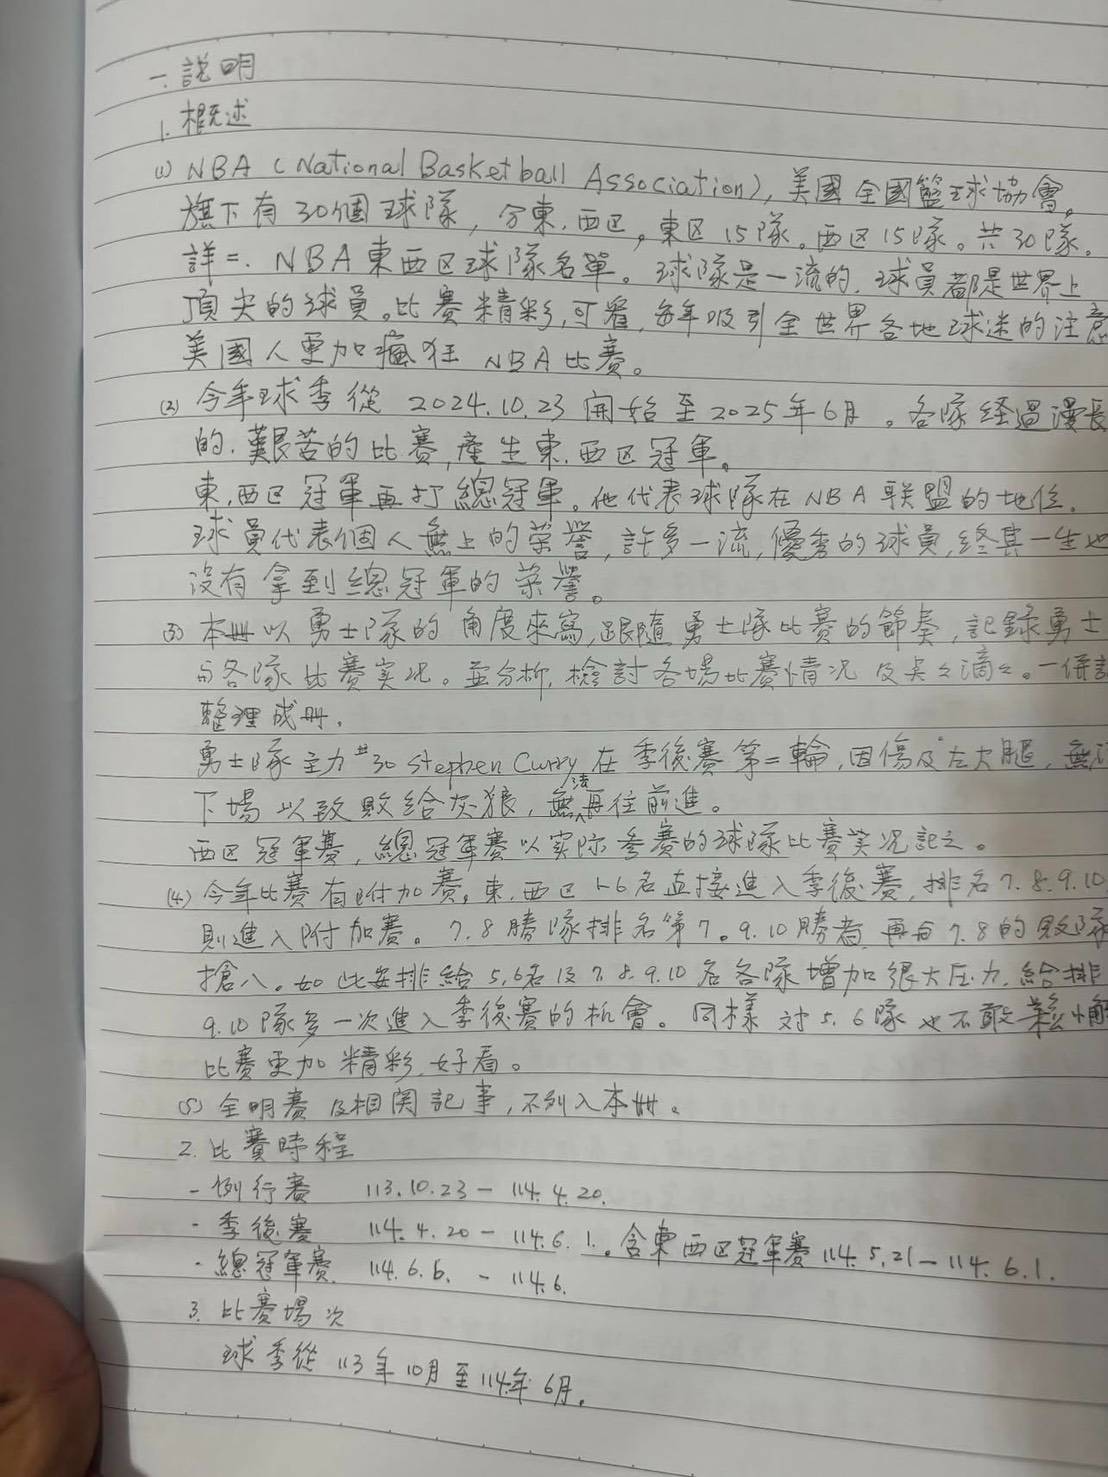 一. 說明
1. 概述
(1) NBA (National Basketball Association), 美國全國籃球協會。
旗下有30個球隊, 分東.西区。東区15隊。西区15隊。共30隊。
詳二. NBA東西区球隊名單。球隊是一流的. 球員都是世界上
頂尖的球員。比賽精彩,可看,每年吸引全世界各地球迷的注意
美國人更加瘋狂 NBA比賽。
(2) 今年球季從 2024.10.23 開始至2025年6月。各隊経過漫長
的.艱苦的比賽,產生東.西区冠軍。
東.西区冠軍再打總冠軍。他代表球隊在NBA联盟的地位.
球員代表個人無上的荣譽,許多一流,優秀的球員,終其一生也
沒有拿到總冠軍的荣譽。
(3) 本冊以勇士隊的角度來寫,跟隨勇士隊比賽的節奏,記録勇士
与各隊比賽实况。並分析.檢討各場比賽情况及点々滴々。一併
整理成冊.
勇士隊主力#30 Stephen Curry 在季後賽第二輪,因傷及左大腿,
下場以致敗給灰狼,無法再往前進。
西区冠軍賽,總冠軍賽以实际參賽的球隊比賽实况記之。
(4) 今年比賽有附加賽。東.西区1-6名直接進入季後賽,排名7.8.9.10
則進入附加賽。7.8勝隊排名第7。9.10勝者再与7.8的敗隊
搶八。如此安排給5.6名及7.8.9.10名各隊增加很大压力.給排
9.10隊多一次進入季後賽的机會。同樣对5.6隊也不敢鬆懈
比賽更加精彩.好看。
(5) 全明賽及相関記事,不列入本冊。
2. 比賽時程
- 例行賽 113.10.23 - 114.4.20.
- 季後賽 114.4.20 - 114.6.1.。含東西区冠軍賽114.5.21 - 114.6.1.
- 總冠軍賽 114.6.6. - 114.6.
3. 比賽場次
球季從113年10月至114年6月。